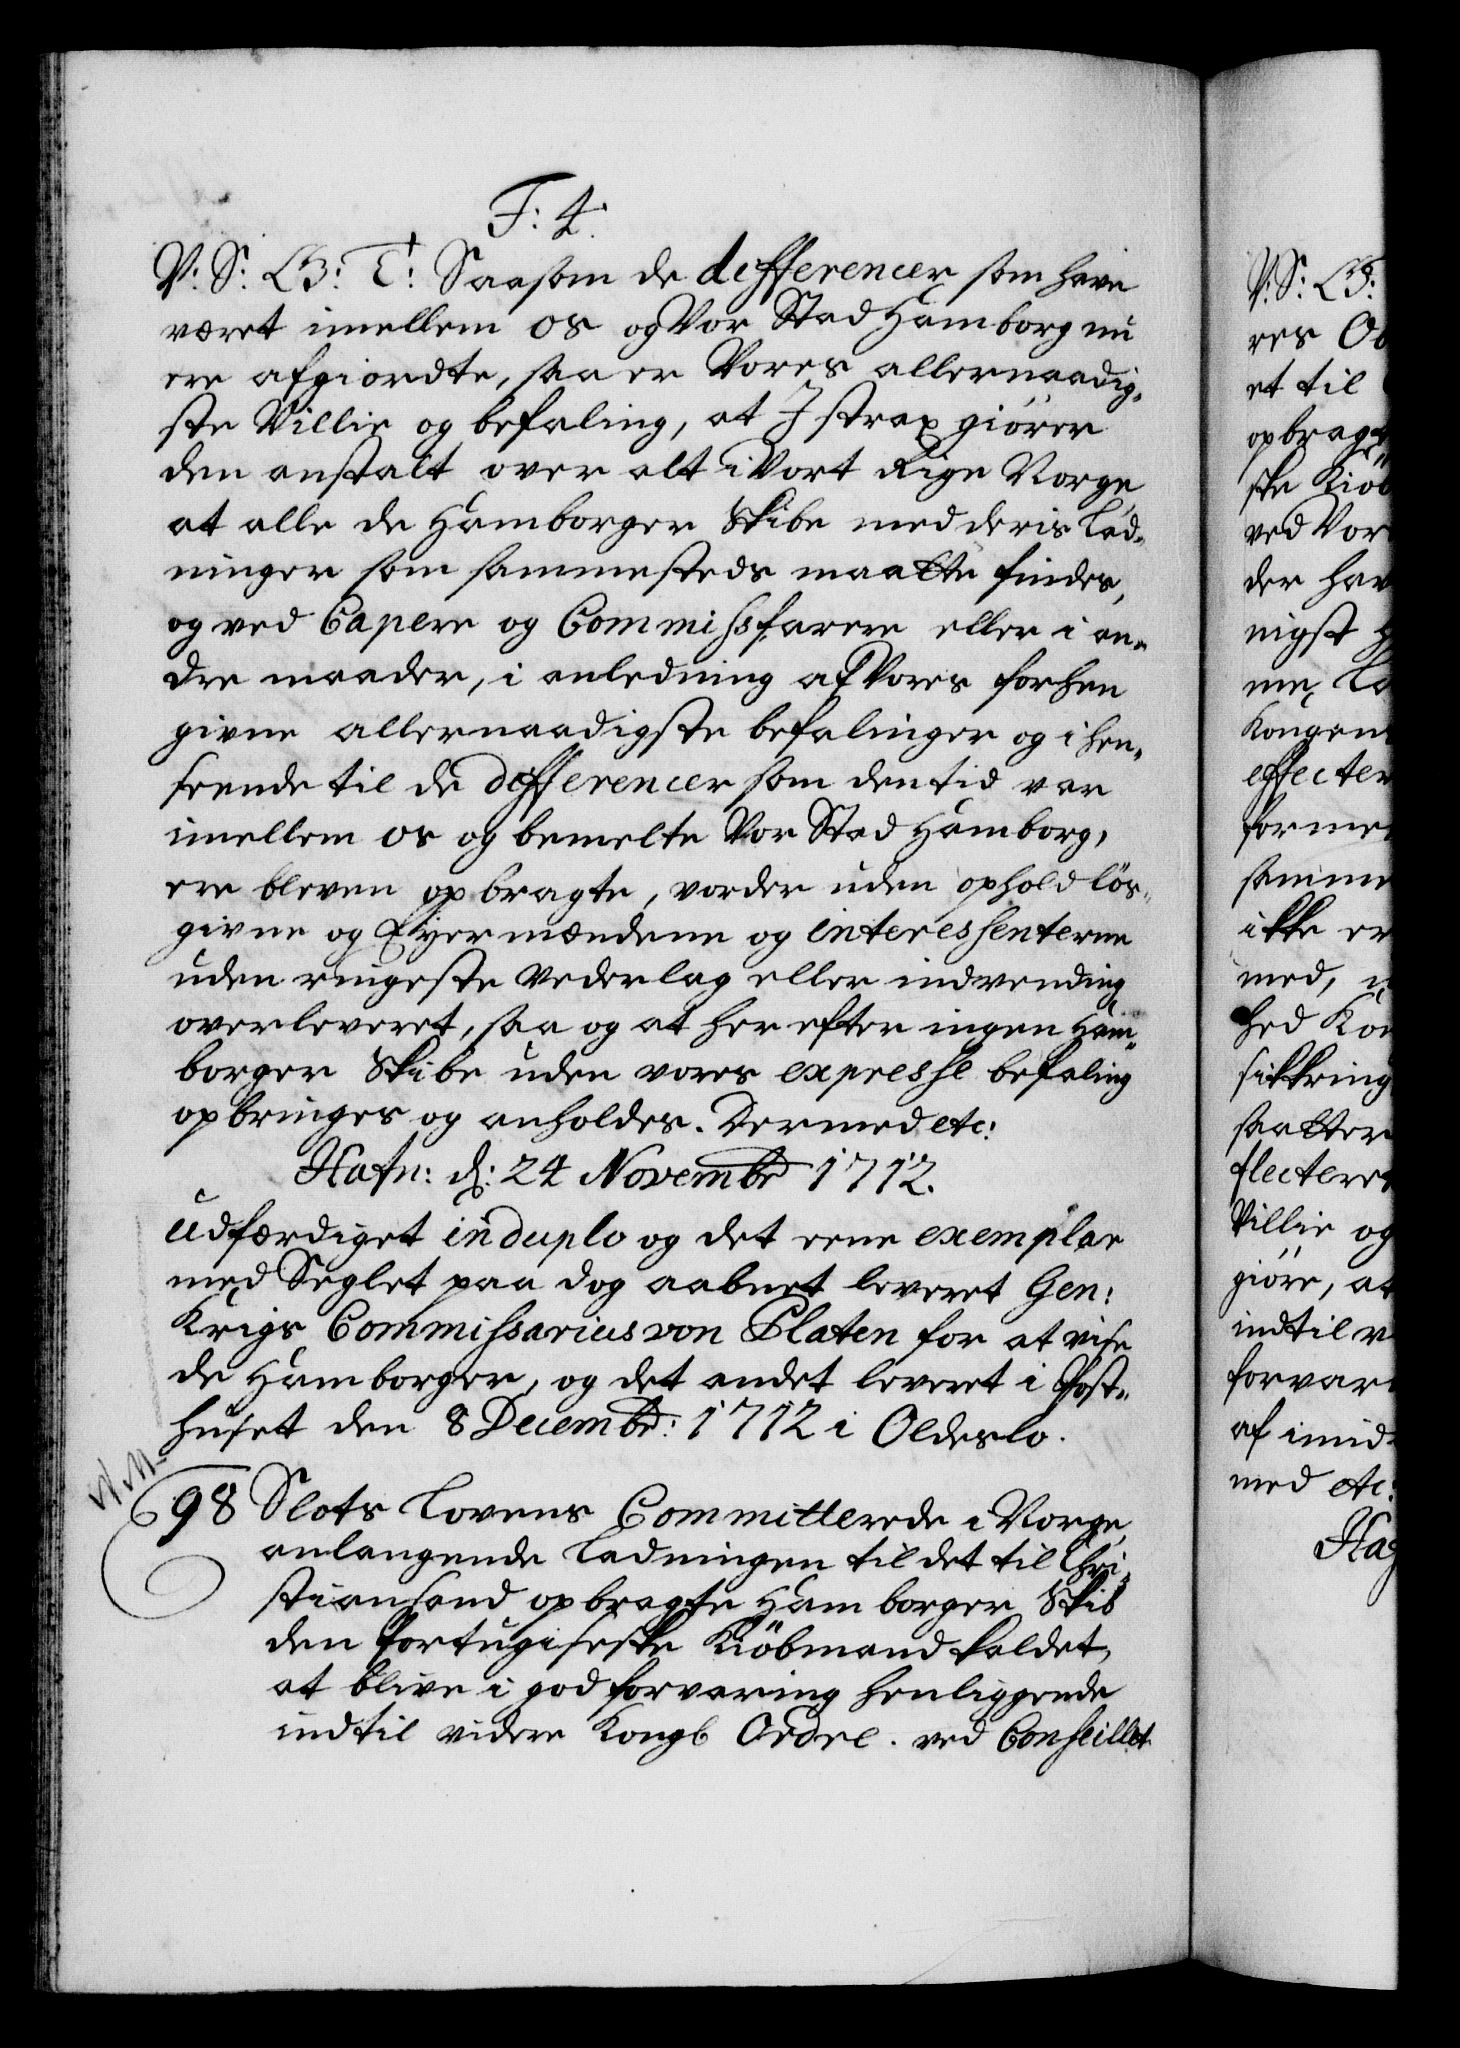 F: 4.
V: S: G: T: Saasom de differencer som have
været imellem os og Vor Stad Hamborg nu
ere afgiordte, saa er Vores allernaadig-
ste Villie og befaling, at I strax giører
den anstalt over alt i Vort Rige Norge
at alle de Hamborger Skibe med deris lad-
ninger som sammesteds maatte findes,
og ved Capere og Commissfarere eller i an-
dre maader, i anledning af Vores forhen
givne allernaadigste befalinger og i hen-
seende til de differencer som den tid var
imellem os og bemelte Vor Stad Hamborg,
ere bleven opbragte, vorder uden ophold løs-
givne og Eyermændene og interessenterne
uden ringeste Vederlag eller indvending
overleveret, saa og at her efter ingen Ham-
borger Skibe uden vores expresse befaling
opbringes og anholdes. Dermed etc:
Hafn: d: 24 Novembr 1712.
Udfærdiget in duplo og det eene exemplar
med Seglet paa dog aabnet leveret Gen:
Krigs Commissarius von Platen for at vise
de Hamborger, og det andet leveret i Post-
huset den 8 Decembr: 1712 i Oldeslo.
98 Slots Lovens Committerede i Norge,
anlangende Ladningen til det til Chri-
stiansand opbragte Hamborger Skib
den Portugiseske Kiöbmand kaldet,
at blive i god forvaring henliggende
indtil videre Kongl Ordre. ved Conseillet
V: S: G:
res Ob
et til
opbragt
ske Kiöb
ved Vor
der hav
nigst
me La
Kongen
effecter
forme
samme
ikke er
med,
hed Kon
sikkring
saatter
flecteret
Villie og
giøre, at
indtil v
forvar
af imid
med etc:
Haf